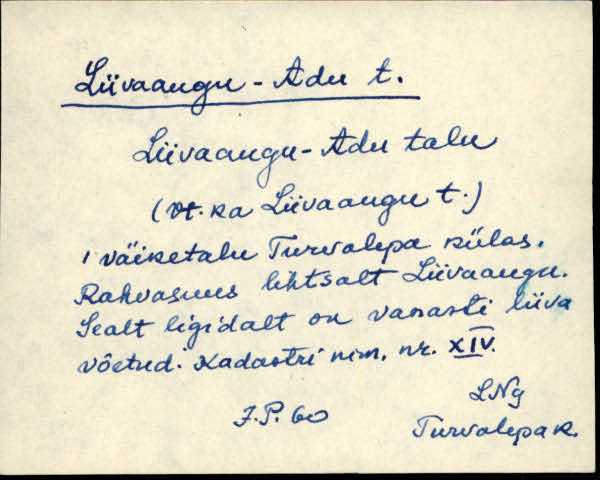 Liivaaugu-Adu t.
Liivaaugu-Adu talu
(vt. ka Liivaaugu t.)
1 väiketalu Turvalepa külas.
Rahvasuus lihtsalt Liivaaugu.
Sealt ligidalt on vanasti liiva
võetud. Kadastri nim. nr. XIV.
LNg
J.P. 60
Turvalepa k.